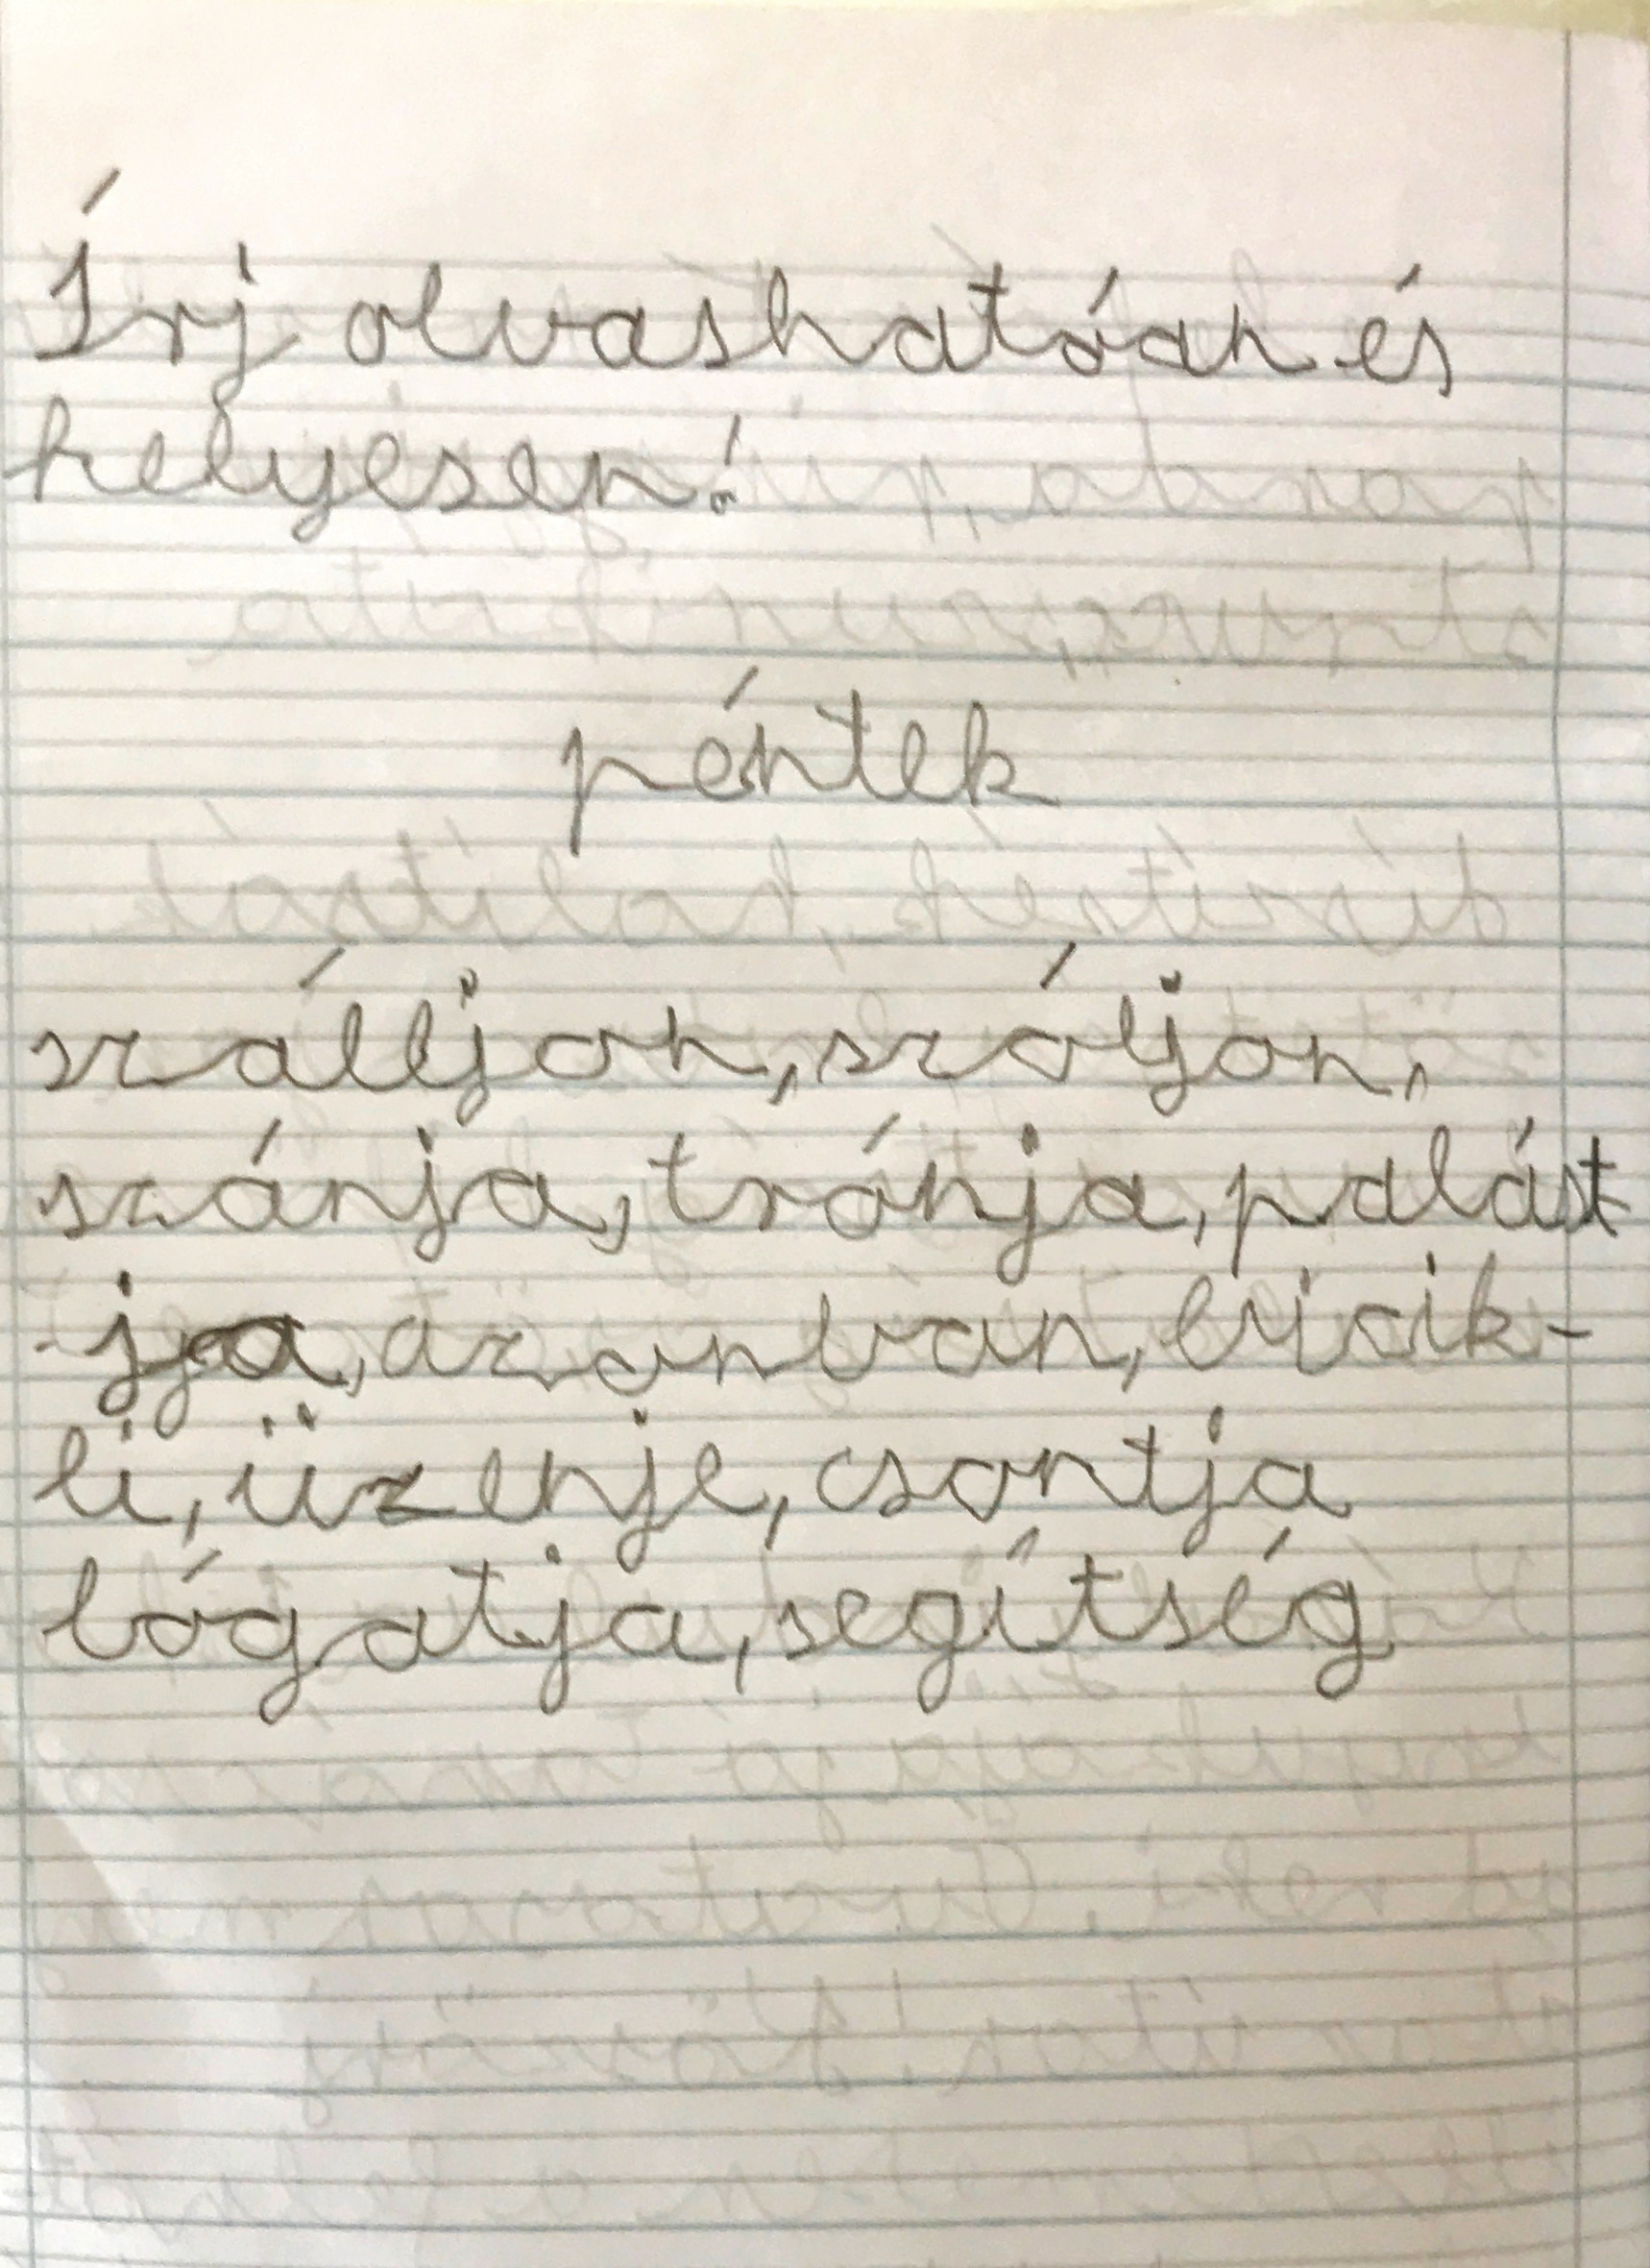 Írj olvashatóan és
helyesen!
péntek
szálljon, szóljon,
szánja, trónja, palást
-ja, azonban, bicik-
li, üzenje, csontja
lógatja, segítség